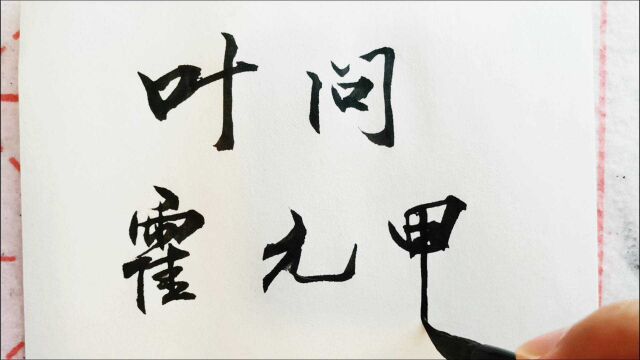 叶问
霍元甲